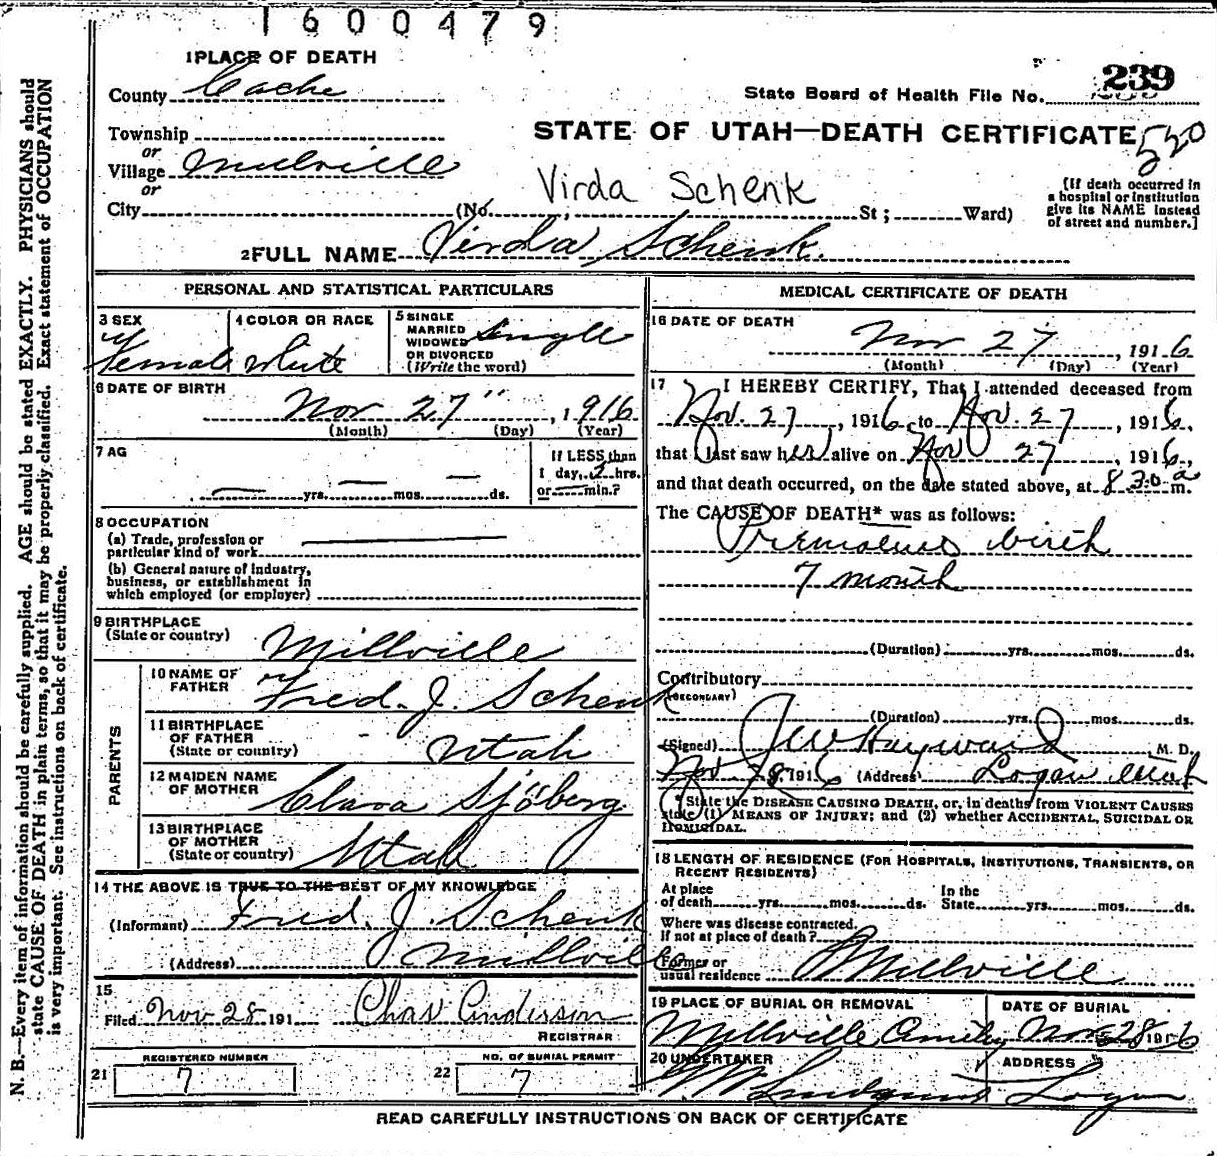 1600479
1 PLACE OF DEATH
County Cache
State Board of Health File No. 239
Township
STATE OF UTAH—DEATH CERTIFICATE 520
or
Village Millville
or
Virda Schenk
[If death occurred in
a hospital or institution
give its NAME instead
of street and number.]
City (No. , St ; Ward)
2 FULL NAME Virda Schenk.
PERSONAL AND STATISTICAL PARTICULARS
3 SEX
Female
4 COLOR OR RACE
White
5 SINGLE
MARRIED
WIDOWED
OR DIVORCED
(Write the word)
Single
6 DATE OF BIRTH
Nov 27" , 1916
(Month) (Day) (Year)
7 AG
— yrs. — mos. — ds.
If LESS than
1 day, 2 hrs.
or — min.?
8 OCCUPATION
(a) Trade, profession or
particular kind of work
(b) General nature of industry,
business, or establishment in
which employed (or employer)
9 BIRTHPLACE
(State or country)
Millville
PARENTS
10 NAME OF
FATHER
Fred. J. Schenk
11 BIRTHPLACE
OF FATHER
(State or country)
Utah
12 MAIDEN NAME
OF MOTHER
Clara Sjöberg
13 BIRTHPLACE
OF MOTHER
(State or country)
Utah
14 THE ABOVE IS TRUE TO THE BEST OF MY KNOWLEDGE
(Informant) Fred. J. Schenk
(Address) Millville
15
Filed Nov 28 191 Chas Anderson
REGISTRAR
REGISTERED NUMBER
21 7
NO. OF BURIAL PERMIT
22 7
MEDICAL CERTIFICATE OF DEATH
16 DATE OF DEATH
Nov 27 , 1916
(Month) (Day) (Year)
17 I HEREBY CERTIFY, That I attended deceased from
Nov. 27 , 1916 to Nov. 27 , 1916,
that I last saw her alive on Nov 27 , 1916,
and that death occurred, on the date stated above, at 8 30 a m.
The CAUSE OF DEATH* was as follows:
birth
7 month
(Duration) yrs. mos. ds.
Contributory
(SECONDARY)
(Duration) yrs. mos. ds.
(Signed) JW Hayward , M. D.
Nov 28, 1916 (Address) Logan Utah
*State the DISEASE CAUSING DEATH, or, in deaths from VIOLENT CAUSES
state (1) MEANS OF INJURY; and (2) whether ACCIDENTAL, SUICIDAL OR
HOMICIDAL.
18 LENGTH OF RESIDENCE (FOR HOSPITALS, INSTITUTIONS, TRANSIENTS, OR
RECENT RESIDENTS)
At place
of death yrs. mos. ds.
In the
State yrs. mos. ds.
Where was disease contracted,
If not at place of death?
Former or
usual residence Millville
19 PLACE OF BURIAL OR REMOVAL
Millville
DATE OF BURIAL
Nov 28 1916
20 UNDERTAKER
ADDRESS
Logan
READ CAREFULLY INSTRUCTIONS ON BACK OF CERTIFICATE
N. B.—Every item of information should be carefully supplied. AGE should be stated EXACTLY. PHYSICIANS should
state CAUSE OF DEATH in plain terms, so that it may be properly classified. Exact statement of OCCUPATION
is very important. See instructions on back of certificate.